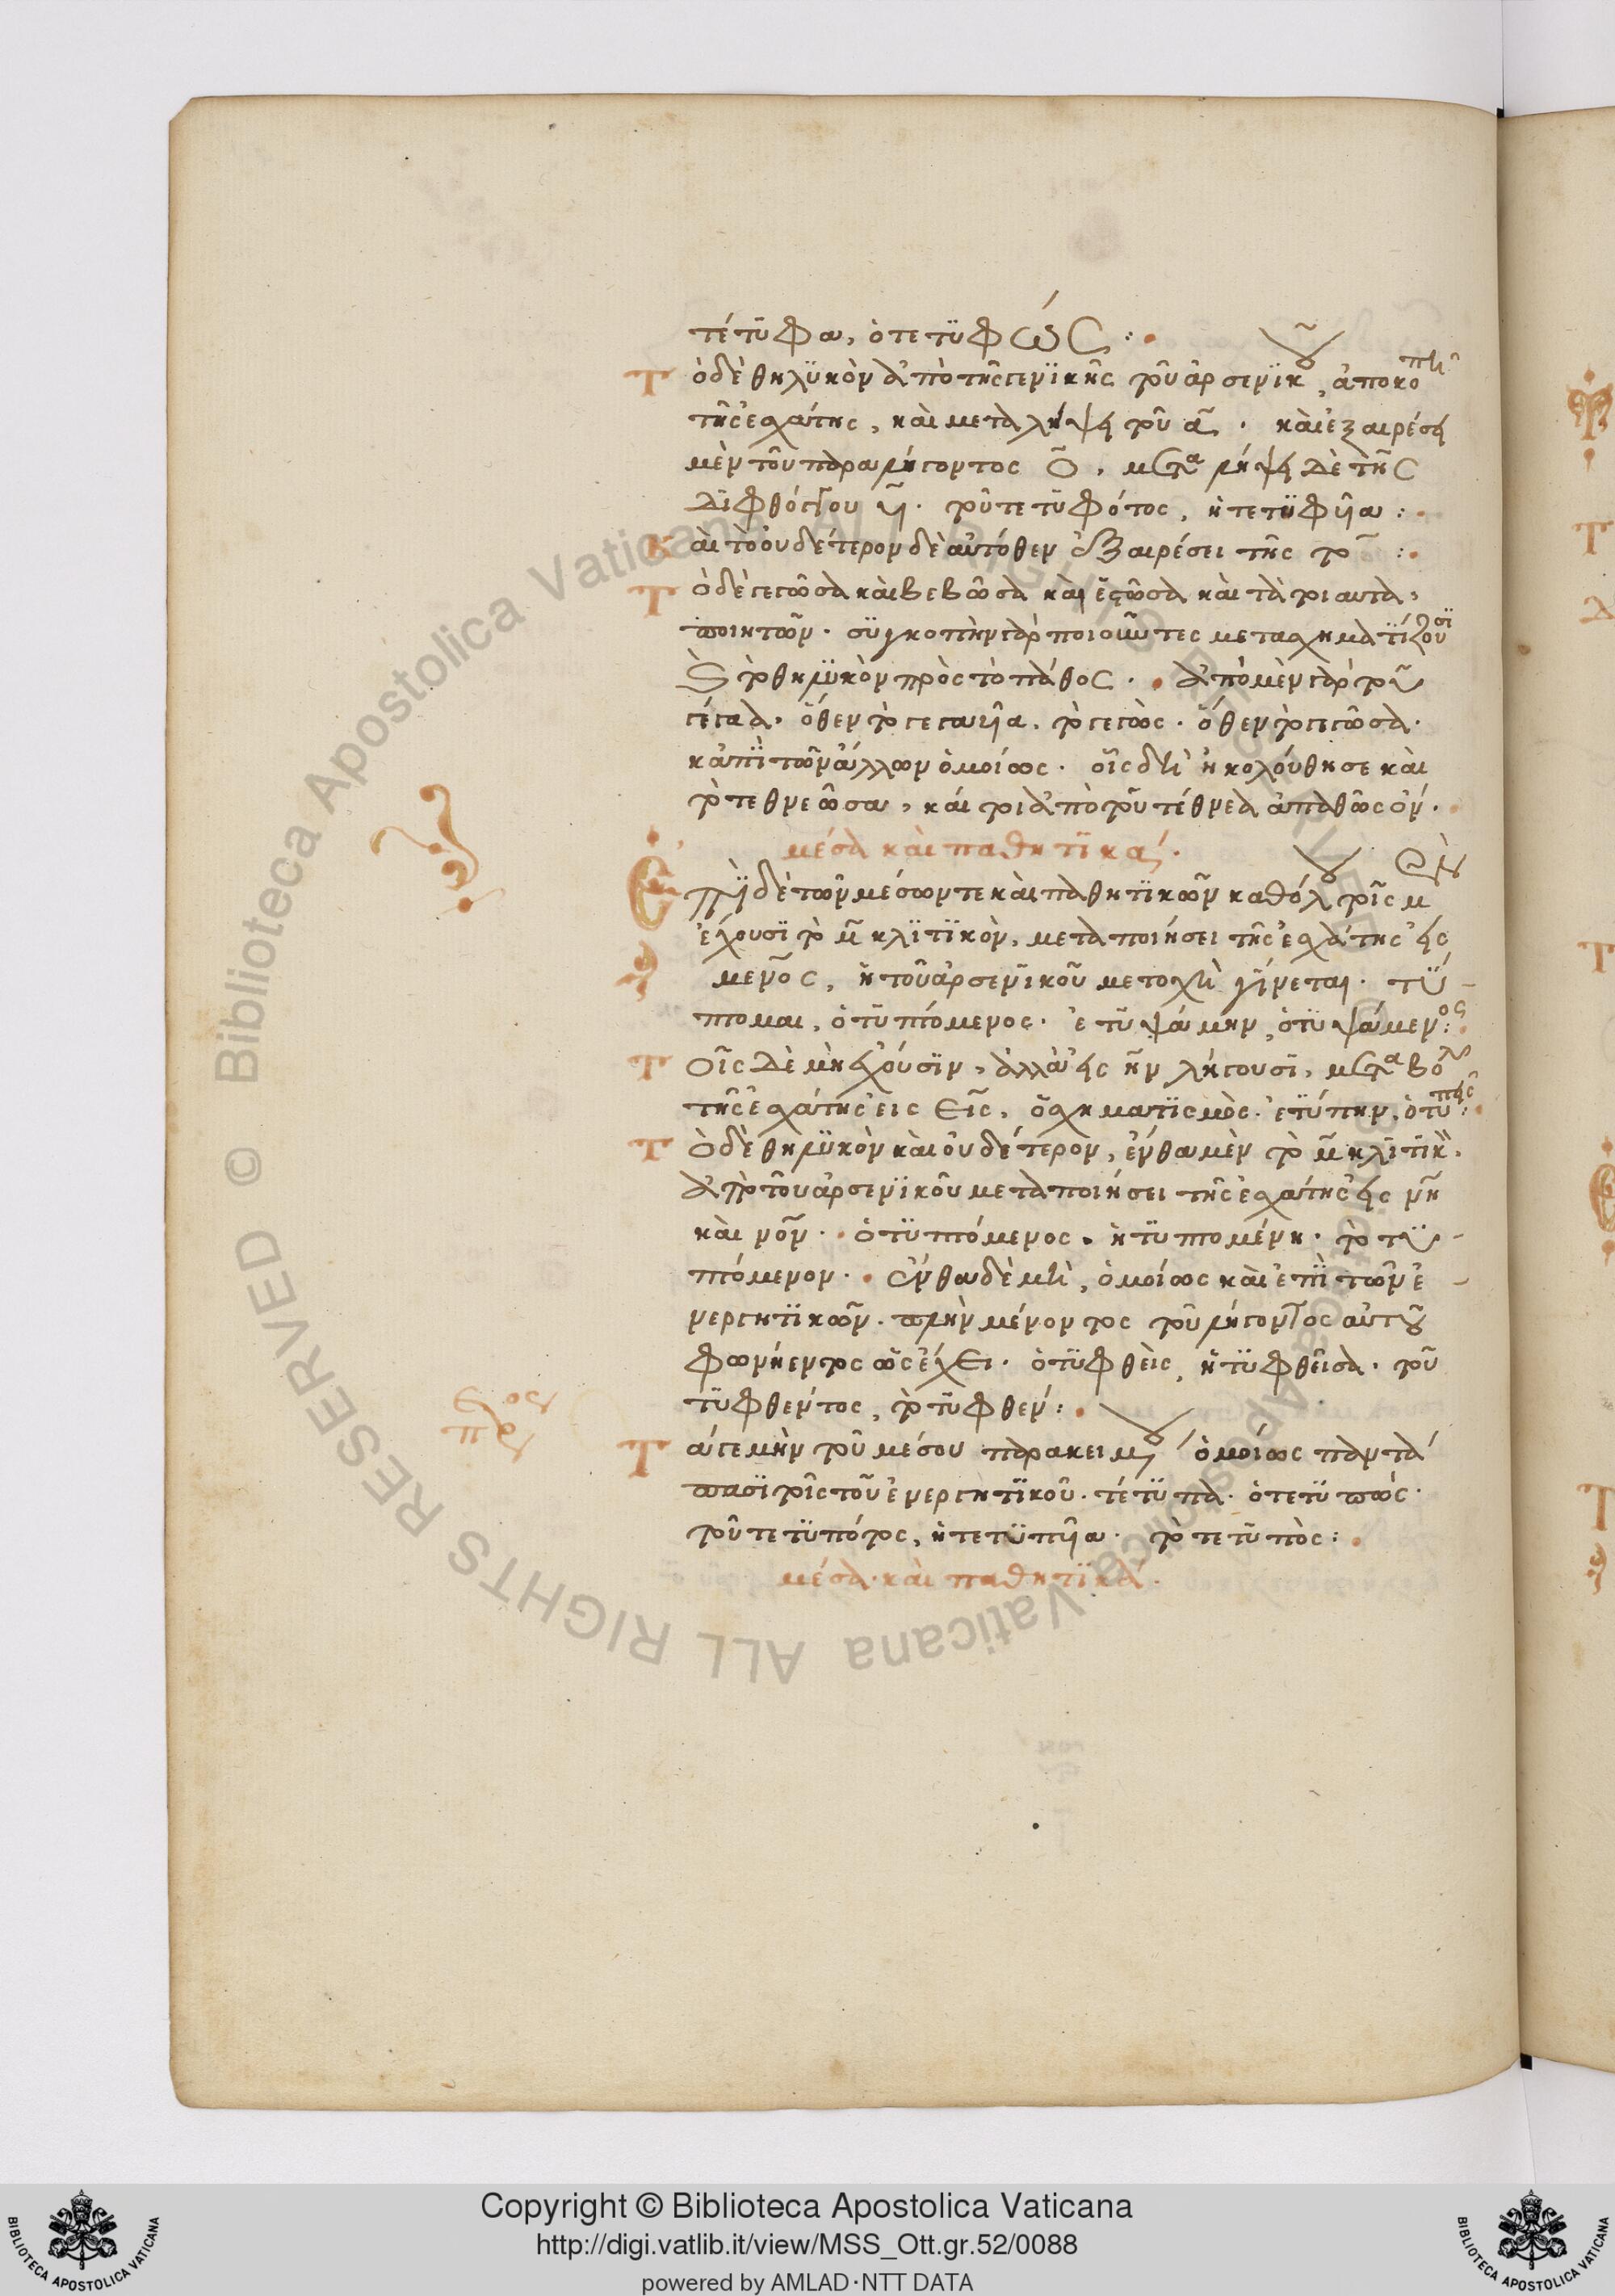 τέτυφα, ὁ τετυφώς :·
Τὸ δὲ θηλυκὸν ἀπὸ τῆς γενικῆς τοῦ ἀρσενικοῦ, ἀποκοπῇ
τῆς ἐσχάτης, καὶ μεταλήψει τοῦ α. καὶ ἐξαιρέσει
μὲν τοῦ παραλήγοντος ο, μεταλήψει δὲ τῆς
διφθόγγου υι. τοῦ τετυφότος, ἡ τετυφυῖα :·
Καὶ τὸ οὐδέτερον δὲ αὐτόθεν ἐξαιρέσει τῆς το :·
Τὸ δὲ γεγῶσα καὶ βεβῶσα καὶ ἑστῶσα καὶ τὰ τοιαῦτα,
ποιητῶν. συγκοπὴν γὰρ ποιοῦντες μετασχηματίζουσι
καὶ τὸ θηλυκὸν πρὸς τὸ πάθος. · ἀπὸ μὲν γὰρ τοῦ
γέγαα, ὅθεν τὸ γεγαυῖα, τὸ γεγώς. ὅθεν τὸ γεγῶσα.
κἀπὶ τῶν ἄλλων ὁμοίως. οἷς δὴ ἠκολούθησε καὶ
τὸ τεθνεῶσα, καί τοι ἀπὸ τοῦ τέθνεα ἀπαθῶς ὄν. ·
μέσα καὶ παθητικά.
Ἐπὶ δὲ τῶν μέσων τε καὶ παθητικῶν καθόλου τοῖς μὲν
ἔχουσι τὸ μ κλιτικὸν, μεταποιήσει τῆς ἐσχάτης εἰς
μενος, ἡ τοῦ ἀρσενικοῦ μετοχὴ γίνεται. τύ-
πτομαι, ὁ τυπτόμενος. ἐτυψάμην, ὁ τυψάμενος :·
Τοῖς δὲ μὴ ἔχουσιν, ἀλλ' εἰς ην λήγουσι, μεταβολῇ
τῆς ἐσχάτης εἰς εις, ὁ σχηματισμός. ἐτύπην, ὁ τυπείς :·
Τὸ δὲ θηλυκὸν καὶ οὐδέτερον, ἔνθα μὲν τὸ μ κλιτικὸν,
ἀπὸ τοῦ ἀρσενικοῦ μεταποιήσει τῆς ἐσχάτης εἰς νη
καὶ νον. · ὁ τυπτόμενος. ἡ τυπτομένη. τὸ τυ-
πτόμενον. · ἔνθα δὲ μὴ, ὁμοίως καὶ ἐπὶ τῶν ἐ-
νεργητικῶν. πλὴν μένοντος τοῦ λήγοντος αὐτοῦ
φωνήεντος ὡς ἔχει. ὁ τυφθεὶς, ἡ τυφθεῖσα. τοῦ
τυφθέντος, τὸ τυφθέν :·
Τά γε μὴν τοῦ μέσου παρακειμένου ὁμοίως πάντα
πᾶσι τοῖς τοῦ ἐνεργητικοῦ. τέτυπα. ὁ τετυπώς.
τοῦ τετυπότος, ἡ τετυπυῖα. τὸ τετυπός :·
μέσα. καὶ παθητικά.
Copyright © Biblioteca Apostolica Vaticana
http://digi.vatlib.it/view/MSS_Ott.gr.52/0088
powered by AMLAD·NTT DATA
BIBLIOTECA APOSTOLICA VATICANA
BIBLIOTECA APOSTOLICA VATICANA
© Biblioteca Apostolica Vaticana ALL RIGHTS RESERVED © Biblioteca Apostolica Vaticana ALL RIGHTS RESERVED